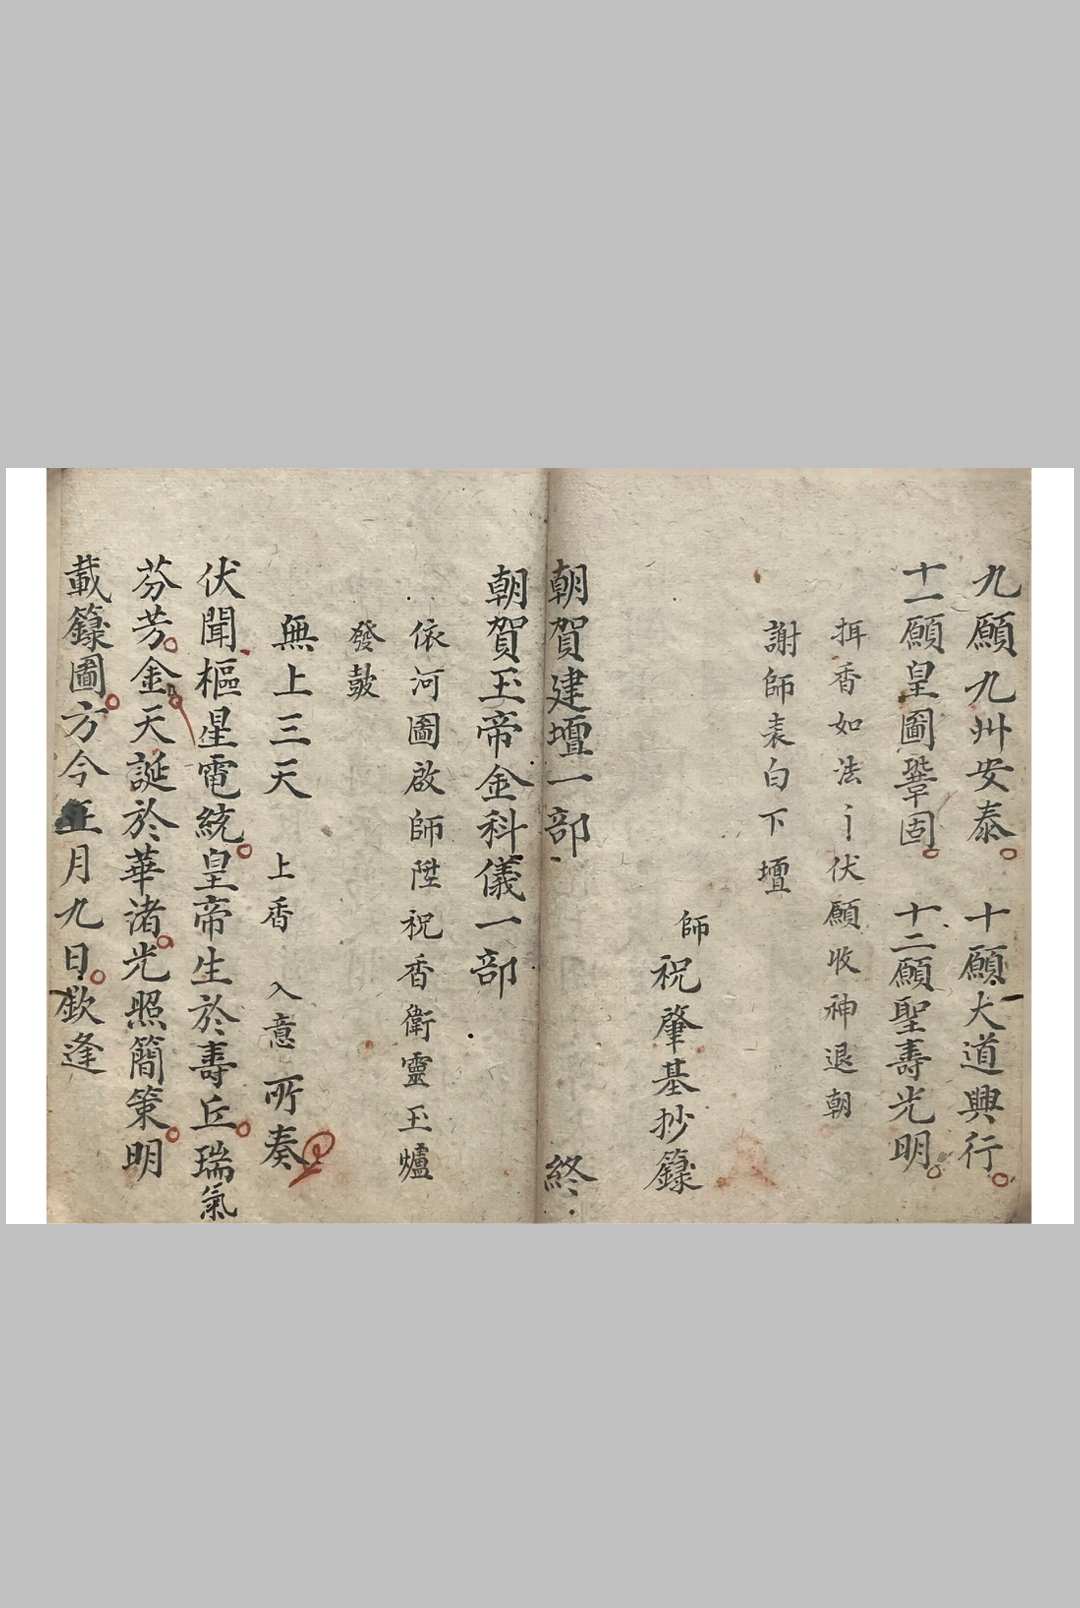 九願九州安泰。十願大道興行。
十一願皇圖鞏固。十二願聖壽光明。
揖香如法〻伏願收神退朝
謝師表白下壇
師祝肇基抄籙
朝賀建壇一部 終
朝賀玉帝金科儀一部
依河圖啟師陞祝香衛靈玉爐
發鼓
無上三天 上香 入意 所奏
伏聞樞星電統。皇帝生於壽丘。瑞氣
芬芳。金天誕於華渚。光照簡策。明
載籙圖。方今正月九日。欽逢